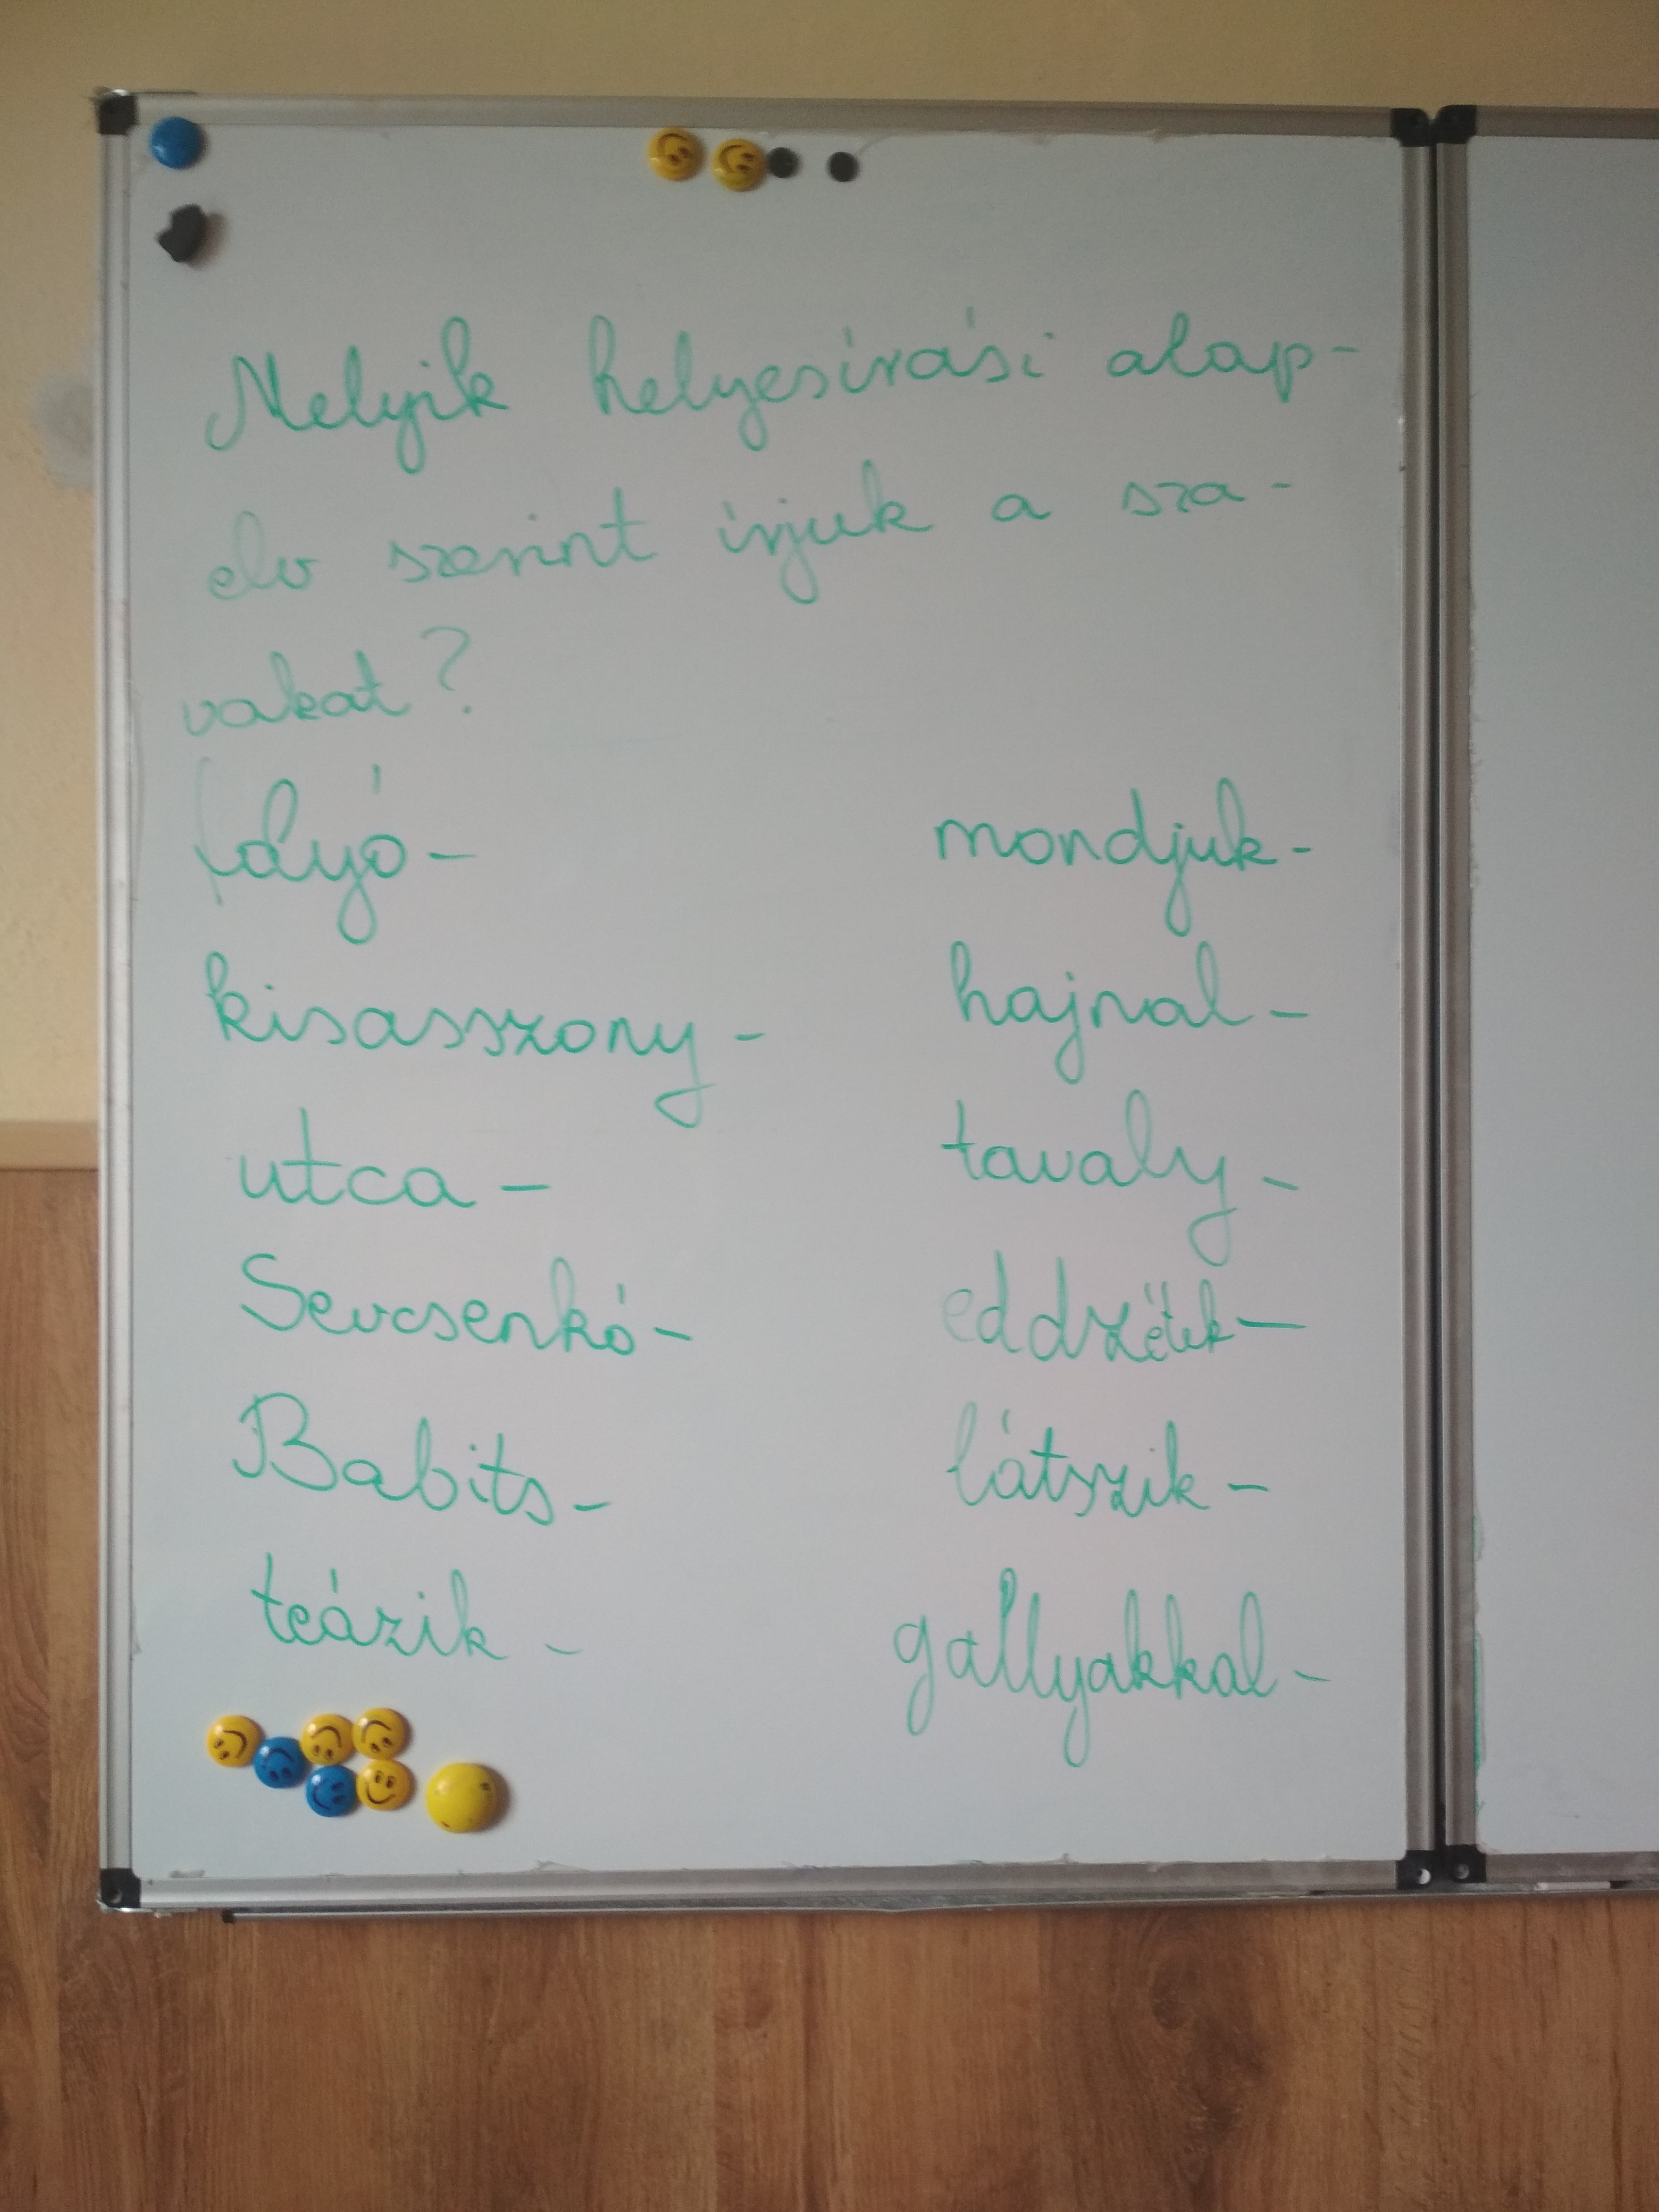 Melyik helyesírási alap-
elv szerint írjuk a sza-
vakat?
folyó-
kisasszony-
utca-
Sevcsenkó-
Babits-
teázik-
mondjuk-
hajnal-
tavaly-
eddzétek-
látszik-
gallyakkal-